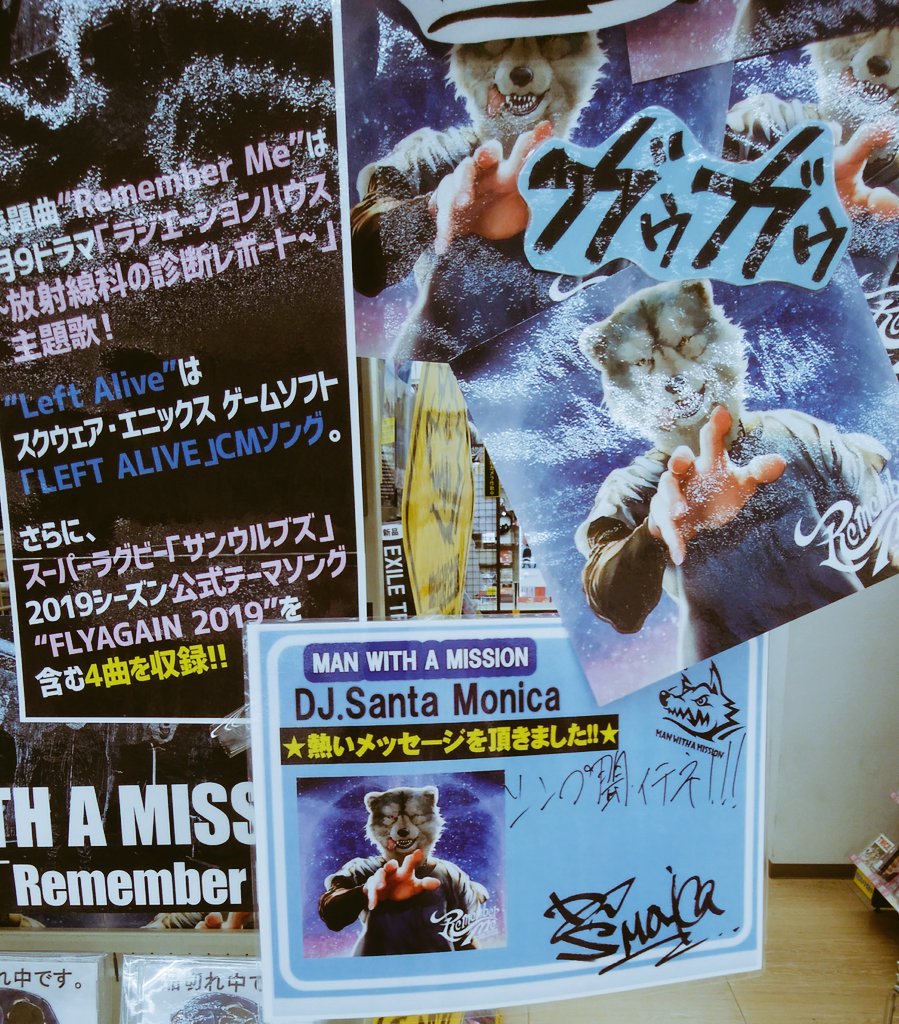 題曲“Remember Me”は
月9ドラマ「ラジエーションハウス
～放射線科の診断レポート～」
主題歌！
“Left Alive”は
スクウェア・エニックス ゲームソフト
「LEFT ALIVE」CMソング。
さらに、
スーパーラグビー「サンウルブズ」
2019シーズン公式テーマソング
“FLYAGAIN 2019”を
含む4曲を収録!!
TH A MISS
Remember
れ中です。
切れ中で
ガゥガゥ
Remember
新品
EXILE T
MAN WITH A MISSION
DJ.Santa Monica
★熱いメッセージを頂きました!!★
MAN WITH A MISSION
シングル聞イテネ!!!
Remember
Me